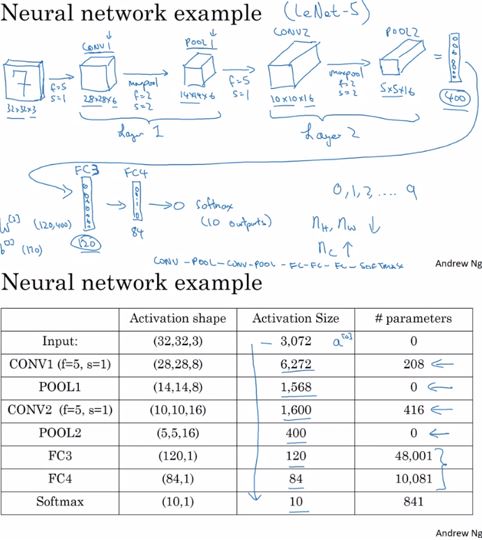 Neural network example (LeNet-5)
CONV1 POOL1 CONV2 POOL2
7
32x32x3
f=5
s=1
28x28x6
maxpool
f=2
s=2
14x14x6
f=5
s=1
10x10x16
maxpool
f=2
s=2
5x5x16
=
400
Layer 1
Layer 2
FC3
FC4
120
84
softmax
(10 outputs)
(120,400)
(120)
0,1,2,....9
nH, nW ↓
nC ↑
CONV-POOL-CONV-POOL-FC-FC-FC-SOFTMAX
Andrew Ng
Neural network example
Activation shape Activation Size # parameters
Input: (32,32,3) 3,072 a[0] 0
CONV1 (f=5, s=1) (28,28,8) 6,272 208
POOL1 (14,14,8) 1,568 0
CONV2 (f=5, s=1) (10,10,16) 1,600 416
POOL2 (5,5,16) 400 0
FC3 (120,1) 120 48,001
FC4 (84,1) 84 10,081
Softmax (10,1) 10 841
Andrew Ng